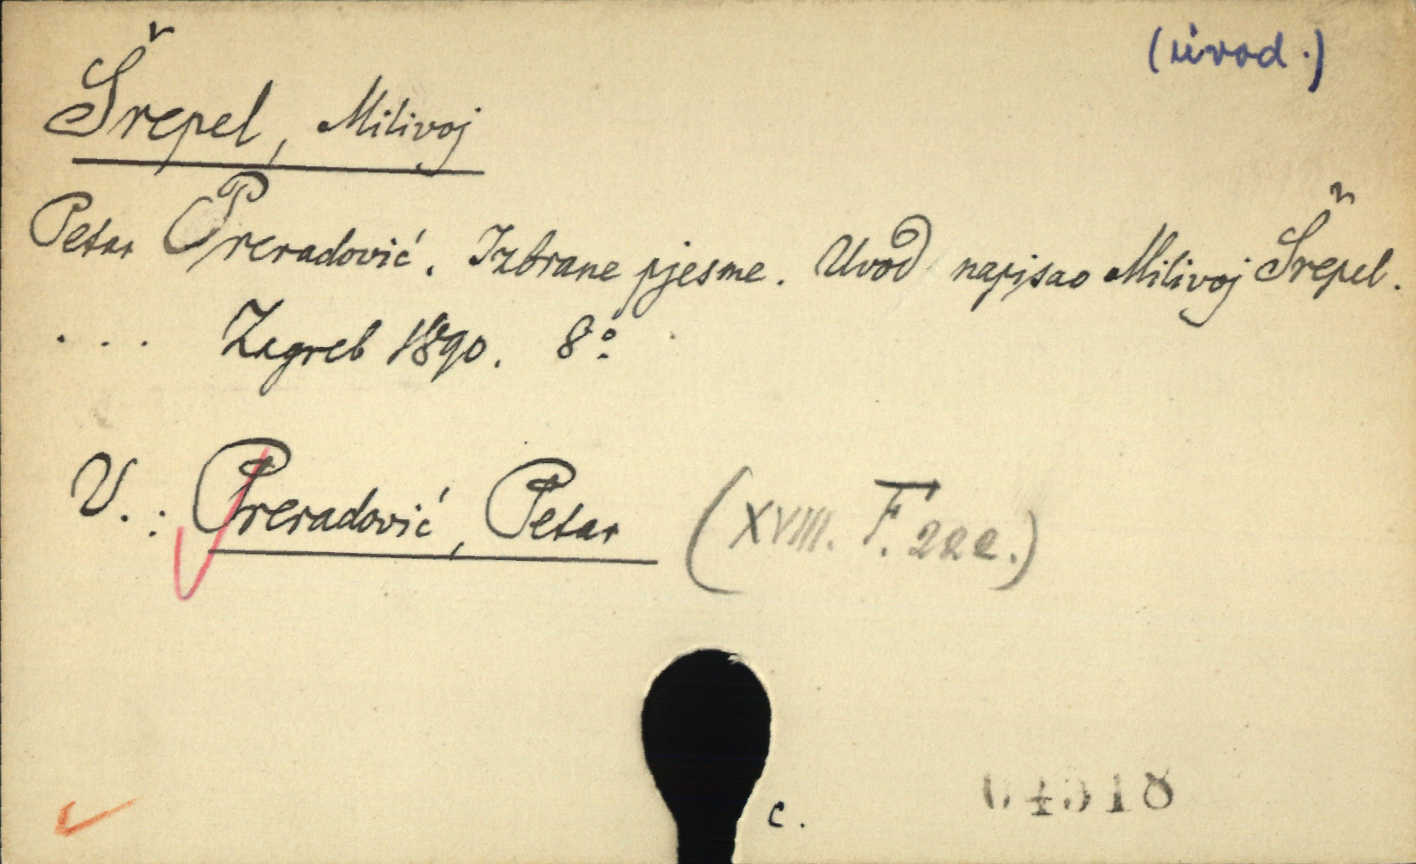 (úvod.)
Šrepel, Milivoj
Petar Preradović. Izbrane pjesme. Uvod napisao Milivoj Šrepel.
... Zagreb 1890. 8°.
V.: Preradović, Petar (XVIII. F. 22e.)
c.